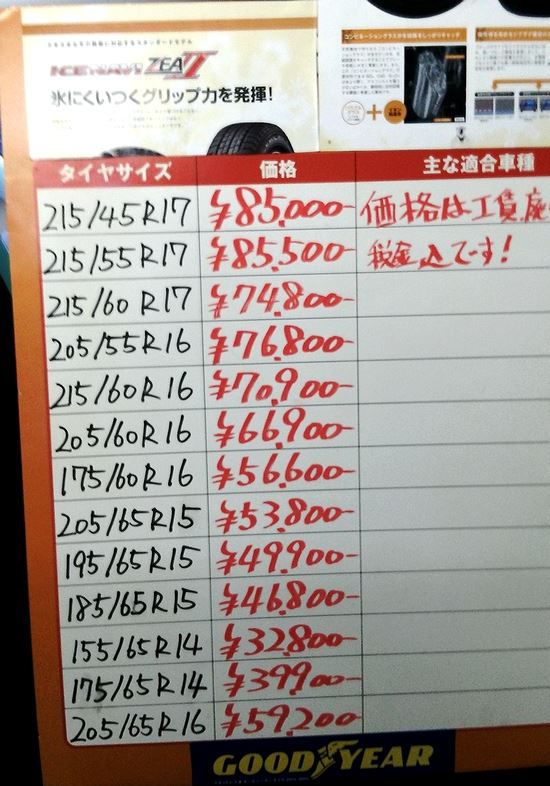 ICE NAVI ZEA II
氷にくいつくグリップ力を発揮!
コンビネーショングラスが氷路面をしっかりキャッチ
タイヤサイズ 価格 主な適合車種
215/45R17 ¥85,000- 価格は工賃、廃
215/55R17 ¥85,500- 税金込です!
215/60R17 ¥74,800-
205/55R16 ¥76,800-
215/60R16 ¥70,900-
205/60R16 ¥66,900-
175/60R16 ¥56,600-
205/65R15 ¥53,800-
195/65R15 ¥49,900-
185/65R15 ¥46,800-
155/65R14 ¥32,800-
175/65R14 ¥39,900-
205/65R16 ¥59,200-
GOOD YEAR